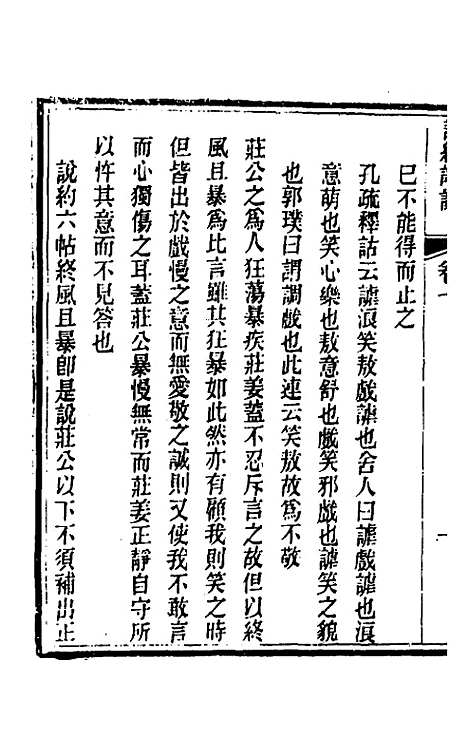 卷一
一
已不能得而止之
孔疏釋詁云謔浪笑敖戲謔也舍人曰謔戲謔也浪
意萌也笑心樂也敖意舒也戲笑邪戲也謔笑之貌
也郭璞曰謂調戲也此連云笑敖故為不敬
莊公之為人狂蕩暴疾莊姜蓋不忍斥言之故但以終
風且暴為比言雖其狂暴如此然亦有顧我則笑之時
但皆出於戲慢之意而無愛敬之誠則又使我不敢言
而心獨傷之耳蓋莊公暴慢無常而莊姜正靜自守所
以忤其意而不見答也
說約六帖終風且暴卽是說莊公以下不須補出止